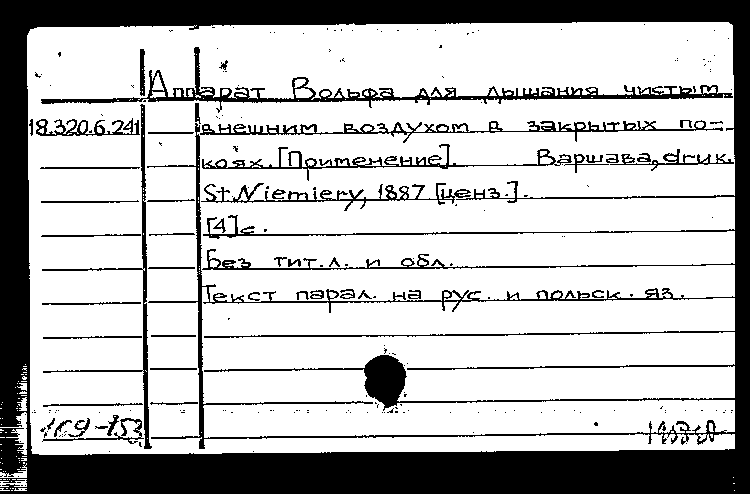 Аппарат Вольфа для дышания чистым
18.320.6.241 внешним воздухом в закрытых по-
коях. [Применение]. Варшава, druk.
St. Niemiery, 1887 [ценз.].
[4] с.
Без тит. л. и обл.
Текст парал. на рус. и польск. яз.
169-153